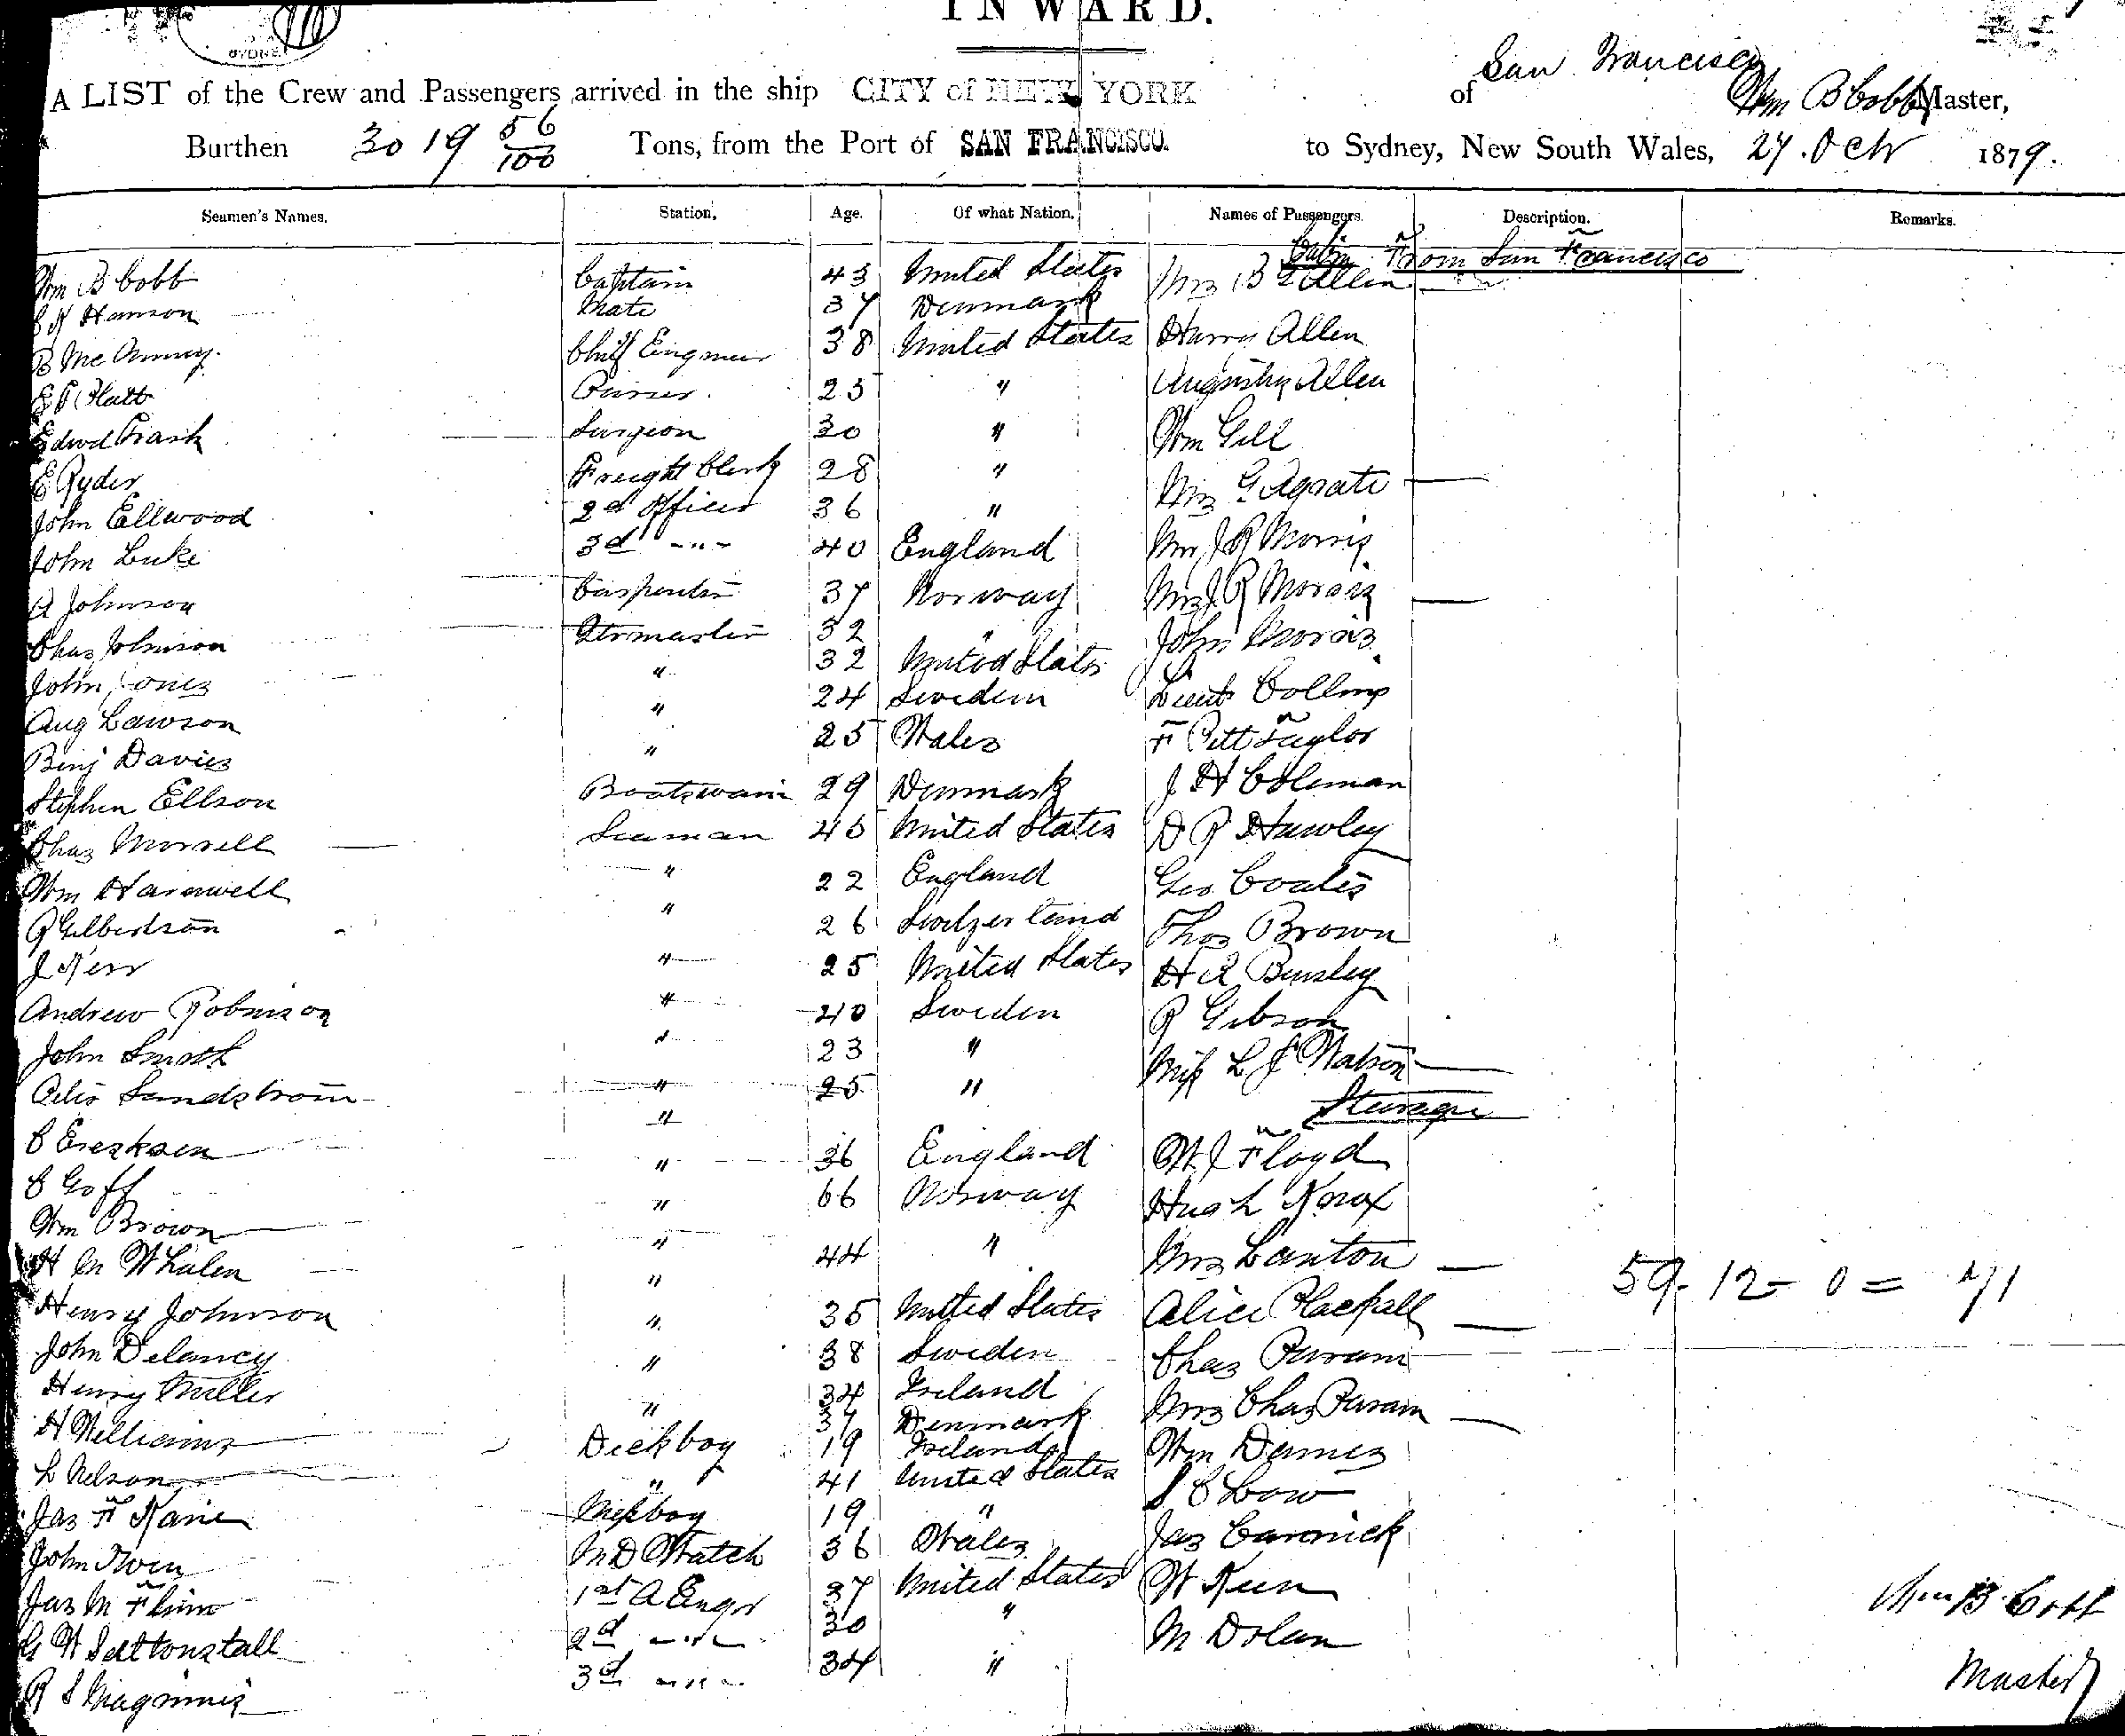 INWARD.
SYDNEY
A LIST of the Crew and Passengers arrived in the ship CITY of NEW YORK of San Francisco Wm B Cobb Master,
Burthen 3019 56/100 Tons, from the Port of SAN FRANCISCO. to Sydney, New South Wales, 27. Oct 1879.
Seamen's Names. Station. Age. Of what Nation. Names of Passengers. Description. Remarks.
Cabin From San Francisco
Wm B Cobb Captain 43 United States Mrs B Allen
Hanson Mate 37 Denmark
B Mc Chief Engineer 38 United States Harry Allen
E Platt Purser 25 " Allen
Edwd Trask Surgeon 30 " Wm Gill
E Ryder Freight Clerk 28 " Mrs G Agrati
John Ellwood 2d Officer 36 "
John Luke 3d -"- 40 England Mr J R Morris
A Johnson Carpenter 37 Norway Mrs J R Morris
Chas Johnson Qtrmaster 32 " John Morris
John Jones " 32 United States
Aug Lawson " 24 Sweden Lieut Collins
Benj Davies " 25 Wales F Pitt Taylor
Stephen Ellson Boatswain 29 Denmark J H Coleman
Chas Morrell Seaman 45 United States D R Hawley
Wm Harawell " 22 England Geo Coates
R Gilbertson " 26 Switzerland Thos Brown
J Kerr " 25 United States H R Bursley
Andrew Robinson " 40 Sweden R Gibson
John Smith " 23 " Miss L J Watson
Sandstrom " 25 "
Steerage
C Ericksen "
C Goff " 36 England W J Floyd
Wm Brown " 66 Norway Hugh Knox
H M Whalen " 44 " Mrs Lanton
59 - 12 - 0 = 71
Henry Johnson " 35 United States Alice Blackall
John Delancy " 38 Sweden Chas Param
Henry Miller " 34 Ireland Mrs Chas Param
H Williams " 37 Denmark
L Nelson Deckboy 19 Ireland Wm Dames
Jas F Kane " 41 United States S C Low
John Owen Messboy 19 " Jas Carmick
Jas M Flinn N D Watch 36 Wales
G W Saltonstall 1st A Engr 37 United States W Keen
R S Maginnis 2d -"- 30 " M Dolan
3d -"- 34 "
Wm B. Cobb
Master